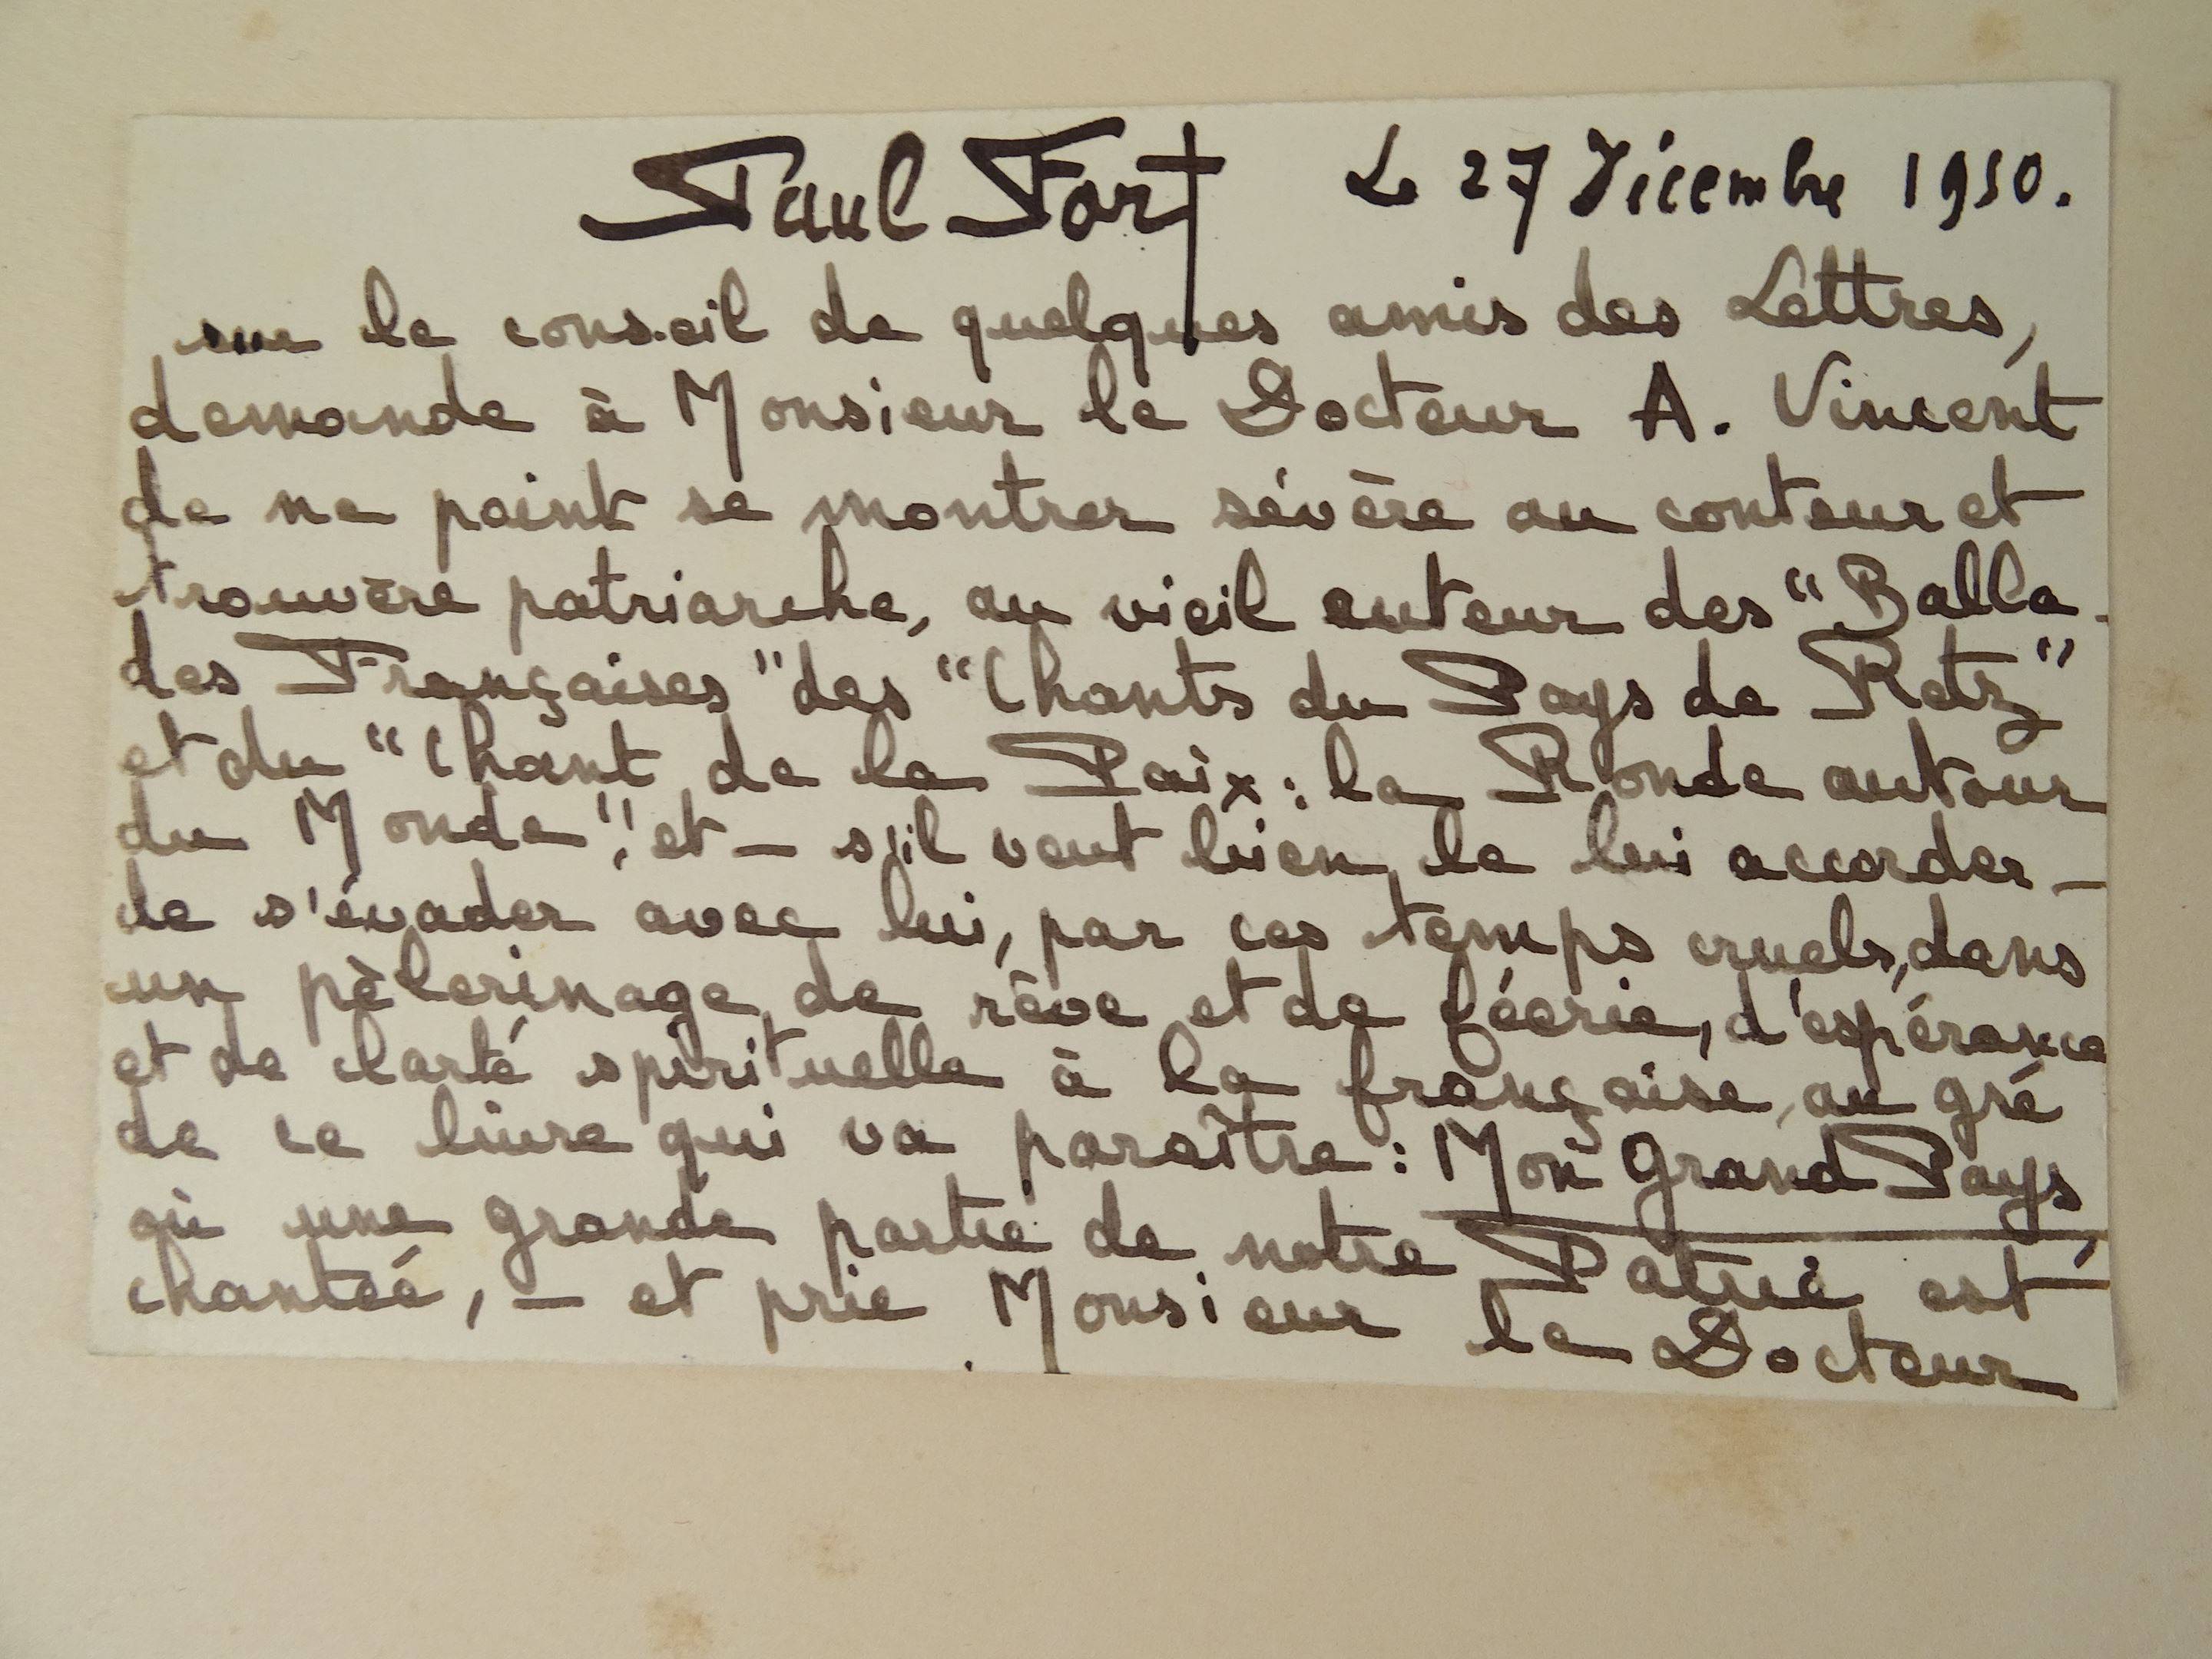 Paul Fort Le 27 Décembre 1950.
sur le conseil de quelques amis des Lettres,
demande à Monsieur le Docteur A. Vincent
de ne point se montrer sévère au conteur et
trouvère patriarche, au vieil auteur des "Balla-
des Françaises" des "Chants du Pays de Retz"
et du "Chant de la Paix : la Ronde autour
du Monde", et — s'il veut bien le lui accorder —
de s'évader avec lui, par ces temps cruels, dans
un pèlerinage de rêve et de féerie, d'espérance
et de clarté spirituelle à la française, au gré
de ce livre qui va paraître : Mon Grand Pays,
où une grande partie de notre Patrie est
chantée, — et prie Monsieur le Docteur